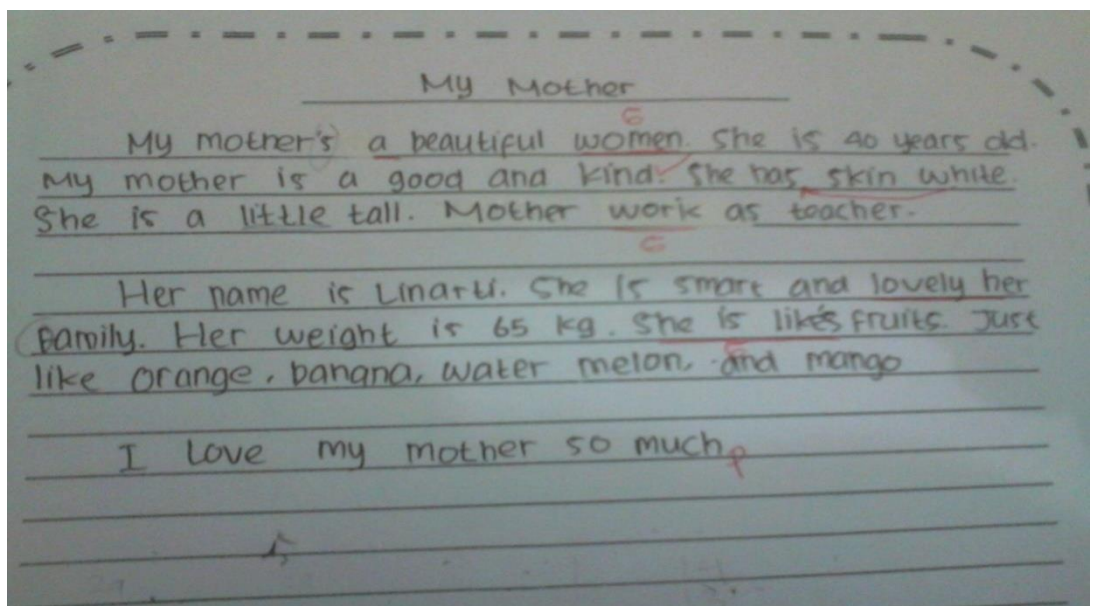 My Mother
My mother's a beautiful women. She is 40 years old.
My mother is a good and kind. She has skin white.
She is a little tall. Mother work as teacher.
Her name is Linarti. She is smart and lovely her
Family. Her weight is 65 kg. She is like's fruits. Just
like orange, banana, water melon, and mango
I love my mother so much